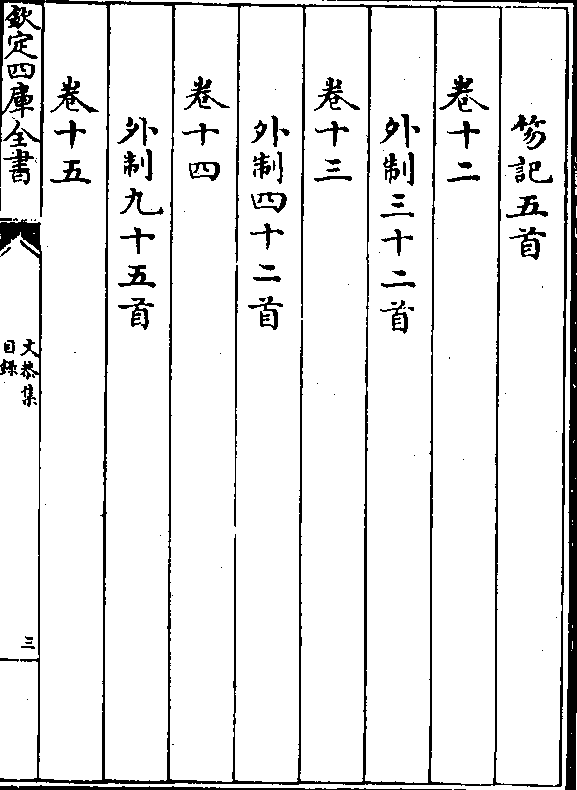 笏記五首
卷十二
外制三十二首
卷十三
外制四十二首
卷十四
外制九十五首
卷十五
欽定四庫全書
文恭集
目錄
三